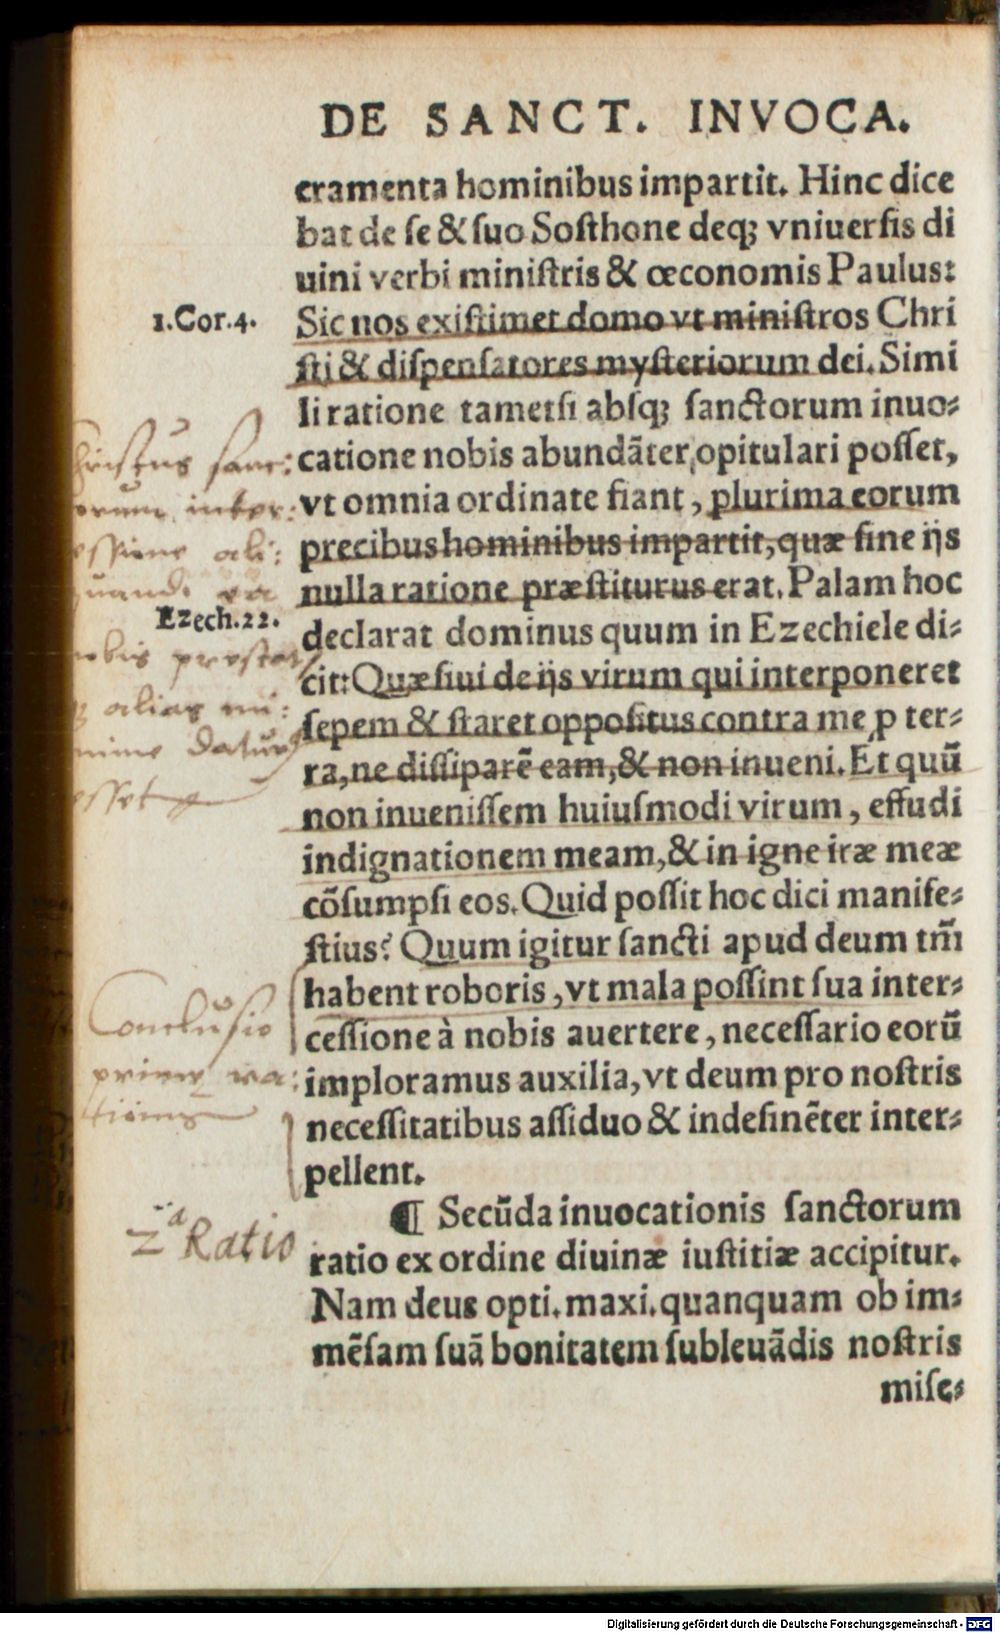 DE SANCT. INVOCA.
cramenta hominibus impartit. Hinc dice
bat de se & suo Sosthone deq; vniuersis di
uini verbi ministris & œconomis Paulus:
1.Cor.4.
Sic nos existimet domo vt ministros Chri
sti & dispensatores mysteriorum dei. Simi
li ratione tametsi absq; sanctorum inuo-
catione nobis abundãter opitulari posset,
vt omnia ordinate fiant, plurima eorum
precibus hominibus impartit, quæ sine ijs
nulla ratione præstiturus erat. Palam hoc
Ezech.22.
declarat dominus quum in Ezechiele di-
cit: Quæsiui de ijs virum qui interponeret
sepem & staret oppositus contra me ꝓ ter-
ra, ne dissiparẽ eam, & non inueni. Et quũ
non inuenissem huiusmodi virum, effudi
indignationem meam, & in igne iræ meæ
cõsumpsi eos. Quid possit hoc dici manife-
stius? Quum igitur sancti apud deum tm̃
habent roboris, vt mala possint sua inter-
cessione à nobis auertere, necessario eorũ
imploramus auxilia, vt deum pro nostris
necessitatibus assiduo & indefinẽter inter-
pellent.
¶ Secũda inuocationis sanctorum
ratio ex ordine diuinæ iustitiæ accipitur.
Nam deus opti. maxi. quanquam ob im-
mẽsam suã bonitatem subleuãdis nostris
mise-
Christus sanc:
torum inter:
essione ali:
quando ea
nobis prestat
alias mi:
nime daturus
esset
Conclusio
prime ra:
tionis
2ª Ratio
Digitalisierung gefördert durch die Deutsche Forschungsgemeinschaft - DFG